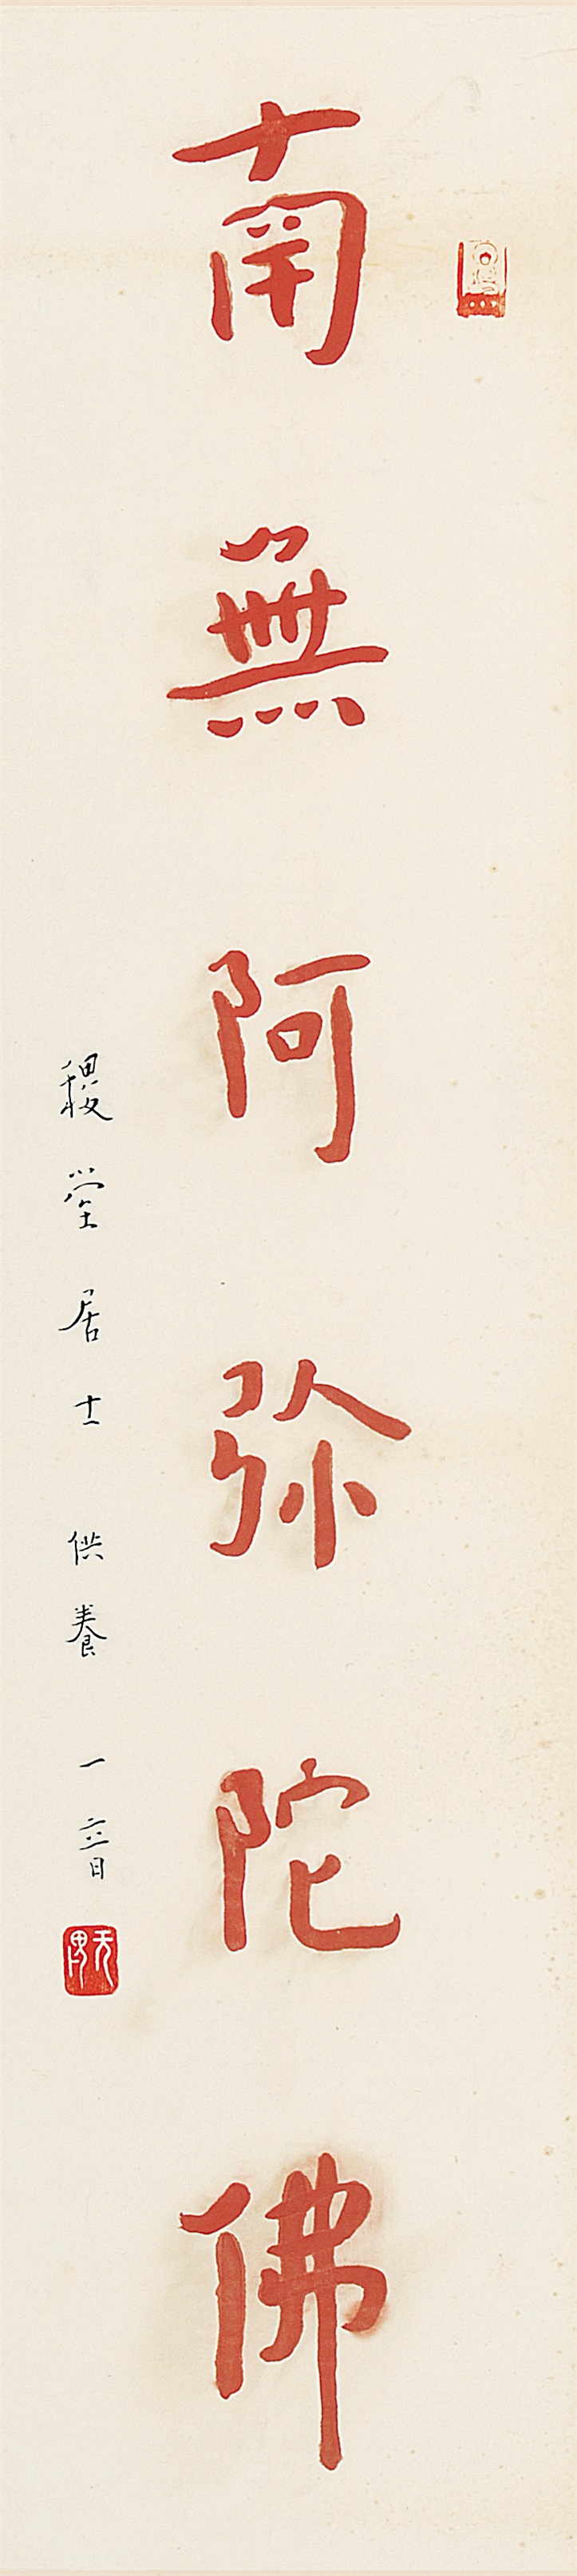 南無阿弥陀佛
稷堂居士 供養 一音